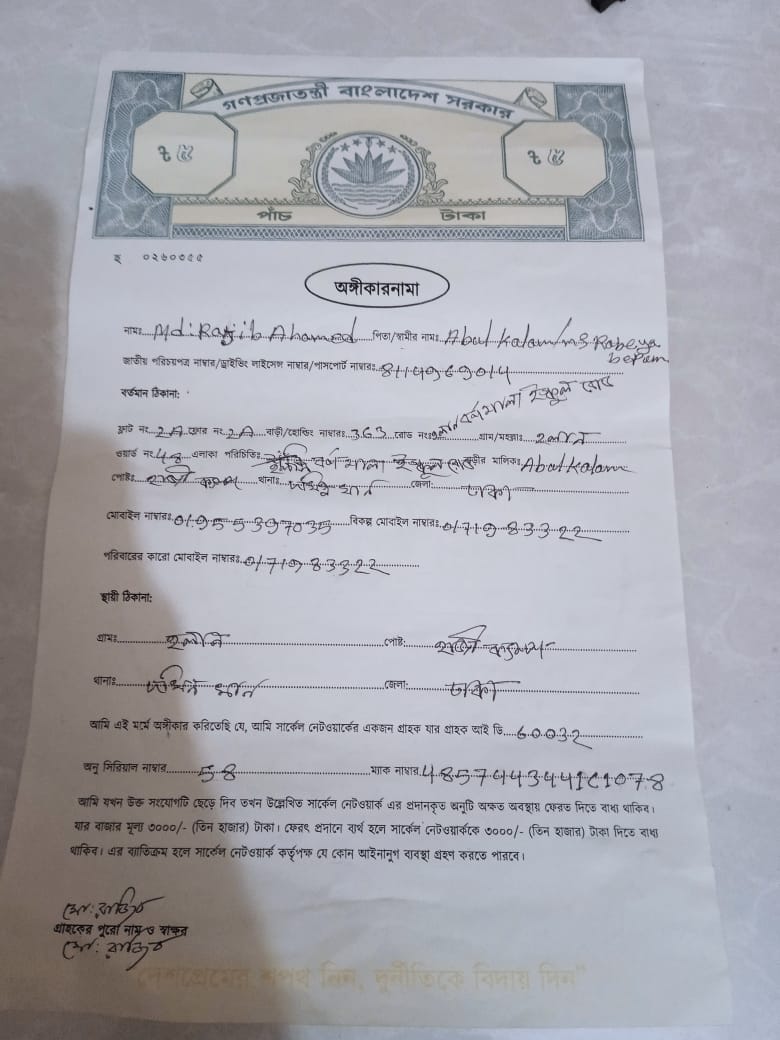 গণপ্রজাতন্ত্রী বাংলাদেশ সরকার
৳ ৫ ৳ ৫
পাঁচ টাকা
হ ০২৬০৩৫৫
অঙ্গীকারনামা
নামঃ Md: Rajib Ahamed পিতা/স্বামীর নামঃ Abul Kalam/ms Rabeya begam
জাতীয় পরিচয়পত্র নাম্বার/ড্রাইভিং লাইসেন্স নাম্বার/পাসপোর্ট নাম্বারঃ 8114969014
বর্তমান ঠিকানা:
ফ্লাট নং 2A ফ্লোর নং 2A বাড়ী/হোল্ডিং নাম্বারঃ 363 রোড নংঃ বর্ণমালা ইস্কুল রোড গ্রাম/মহল্লাঃ হলান
ওয়ার্ড নং 48 এলাকা পরিচিতিঃ বর্ণমালা ইস্কুল রোড বাড়ীর মালিকঃ Abul Kalam
পোষ্টঃ থানাঃ দক্ষিণ খান জেলা: ঢাকা
মোবাইল নাম্বারঃ 01955397035 বিকল্প মোবাইল নাম্বারঃ 0171983322
পরিবারের কারো মোবাইল নাম্বারঃ 0171983322
স্থায়ী ঠিকানা:
গ্রামঃ হলান পোষ্ট:
থানাঃ দক্ষিন খান জেলা: ঢাকা
আমি এই মর্মে অঙ্গীকার করিতেছি যে, আমি সার্কেল নেটওয়ার্কের একজন গ্রাহক যার গ্রাহক আই ডি 60032
অনু সিরিয়াল নাম্বার 58 ম্যাক নাম্বার 4857443441C1078
আমি যখন উক্ত সংযোগটি ছেড়ে দিব তখন উল্লেখিত সার্কেল নেটওয়ার্ক এর প্রদানকৃত অনুটি অক্ষত অবস্থায় ফেরত দিতে বাধ্য থাকিব।
যার বাজার মূল্য ৩০০০/- (তিন হাজার) টাকা। ফেরৎ প্রদানে ব্যর্থ হলে সার্কেল নেটওয়ার্ককে ৩০০০/- (তিন হাজার) টাকা দিতে বাধ্য
থাকিব। এর ব্যতিক্রম হলে সার্কেল নেটওয়ার্ক কর্তৃপক্ষ যে কোন আইনানুগ ব্যবস্থা গ্রহণ করতে পারবে।
মো: রাজিব
গ্রাহকের পুরো নাম ও স্বাক্ষর
মো: রাজিব
"দেশপ্রেমের শপথ নিন, দুর্নীতিকে বিদায় দিন"